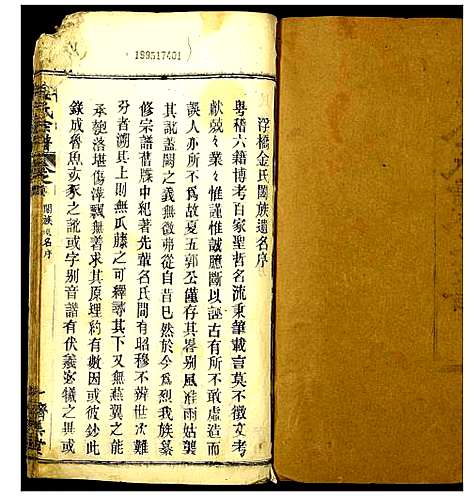 199517401
浮橋金氏闕族遺名序
粵稽六籍博考百家聖哲名流秉筆載言莫不徵文考
獻兢兢業業惟謹惟誠臆斷以誣古有所不敢虛造而
誤人亦所不為故夏五郭公僅存其畧别風淮雨姑襲
其訛蓋闕之義無微弗從自昔已然於今為烈我族纂
修宗譜舊牒中紀著先輩名氏間有昭穆不辨世次難
分者溯其上則無瓜藤之可釋尋其下又無燕翼之能
承匏落堪傷漂飄無着求其原理約有數因或彼鈔此
錄成魯魚亥豕之訛或字别音諧有伏羲宓犧之異或
金氏宗譜
闕族遺名序
一
濟美堂